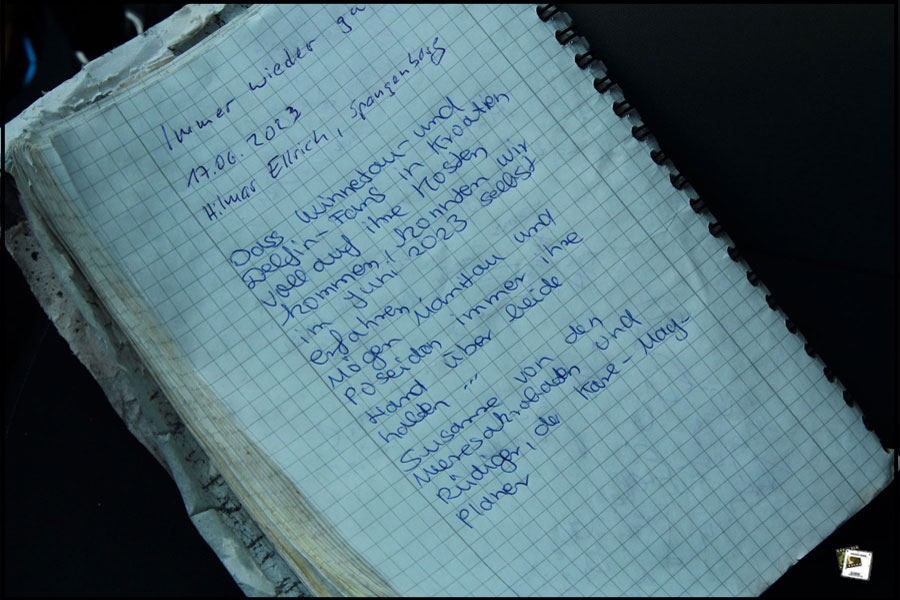 Immer wieder ga
17.06.2023
Hilmar Ellrich, Spangenberg
Dass Winnetou- und
Delfin-Fans in Kroatien
voll auf ihre Kosten
kommen, konnten wir
im Juni 2023 selbst
erfahren.
Mögen Manitou und
Poseidon immer ihre
Hand über beide
halten ...
Susanne von den
Meeresakrobaten und
Rüdiger, der Karl-May-
Planer